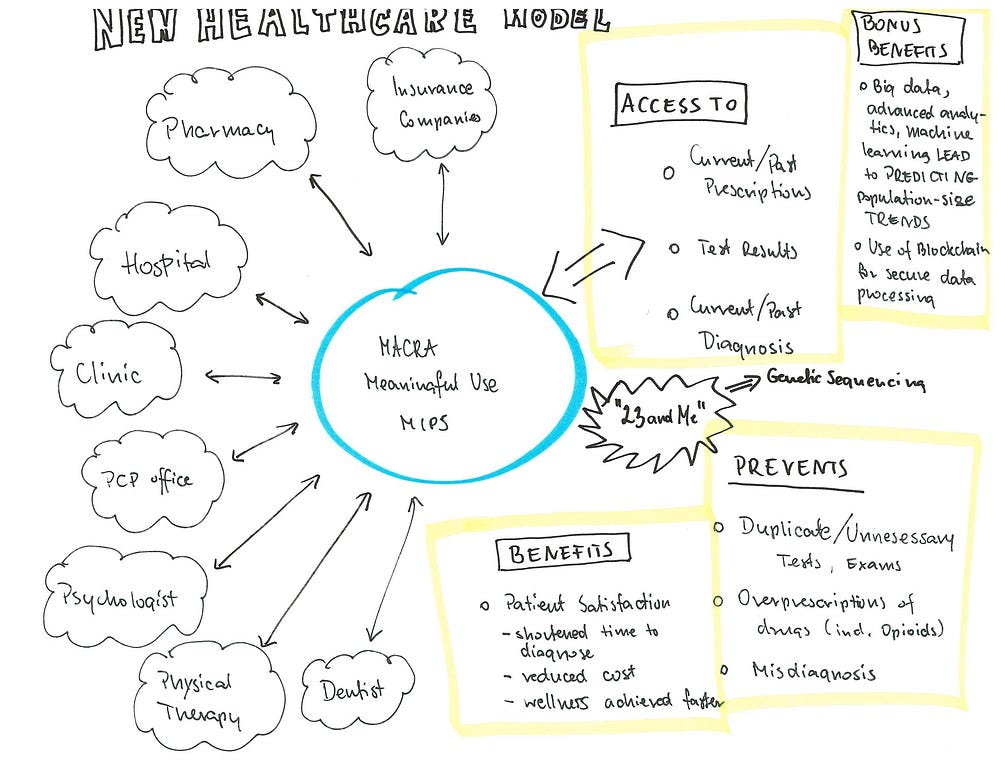 NEW HEALTHCARE MODEL
Pharmacy
Insurance
Companies
Hospital
Clinic
PCP office
Psychologist
Physical
Therapy
Dentist
MACRA
Meaningful Use
MIPS
ACCESS TO
Current/Past
Prescriptions
Test Results
Current/Past
Diagnosis
BONUS
BENEFITS
Big data,
advanced analy-
tics, machine
learning LEAD
to PREDICTING
population-size
TRENDS
Use of Blockchain
for secure data
processing
"23 and Me"
Genetic Sequencing
BENEFITS
Patient Satisfaction
- shortened time to
diagnose
- reduced cost
- wellness achieved faster
PREVENTS
Duplicate/Unnesessary
Tests, Exams
Overprescriptions of
drugs (incl. Opioids)
Misdiagnosis